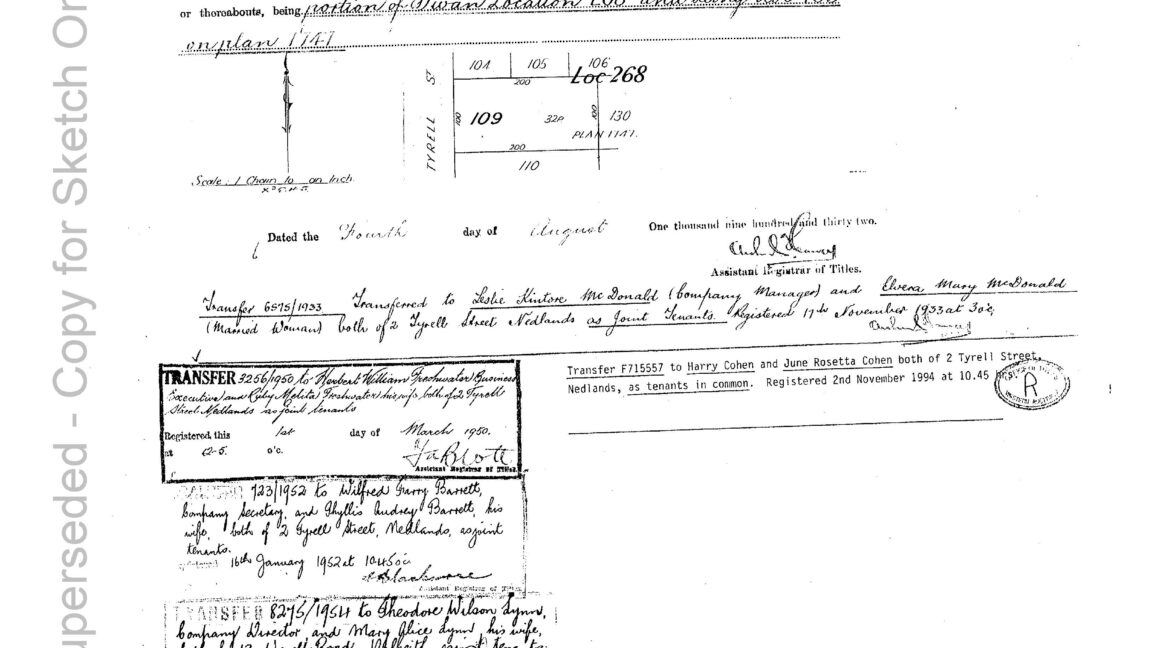 or thereabouts, being portion of Swan Location 268 and being Lot 109
on plan 1747
104 105 106
Loc 268
200
TYRELL ST
100 109 32P 100 130
PLAN 1747.
200
110
Scale: 1 Chain to an Inch.
Dated the Fourth day of August One thousand nine hundred and thirty two.
Assistant Registrar of Titles.
Transfer 6575/1933 Transferred to Leslie Kintore McDonald (Company Manager) and Elvera Mary McDonald
(Married Woman) both of 2 Tyrell Street Nedlands as Joint Tenants. Registered 17th November 1933 at 3 o'c.
TRANSFER 3256/1950 to Herbert William Freshwater Business
Executive and Melita Freshwater his wife, both of 2 Tyrell
Street Nedlands as joint tenants
Registered this 1st day of March 1950.
at 12-5. o'c.
Assistant Registrar of Titles.
Transfer F715557 to Harry Cohen and June Rosetta Cohen both of 2 Tyrell Street,
Nedlands, as tenants in common. Registered 2nd November 1994 at 10.45 hrs.
R
723/1952 to Wilfred Harry Barrett,
Company Secretary, and Phyllis Audrey Barrett, his
wife, both of 2 Tyrell Street, Nedlands, as joint
tenants.
16th January 1952 at 10.45 o'c
Assistant Registrar of Titles
TRANSFER 8275/1954 to Theodore Wilson Lynn,
Company Director, and Mary Alice Lynn, his wife,
Superseded - Copy for Sketch On